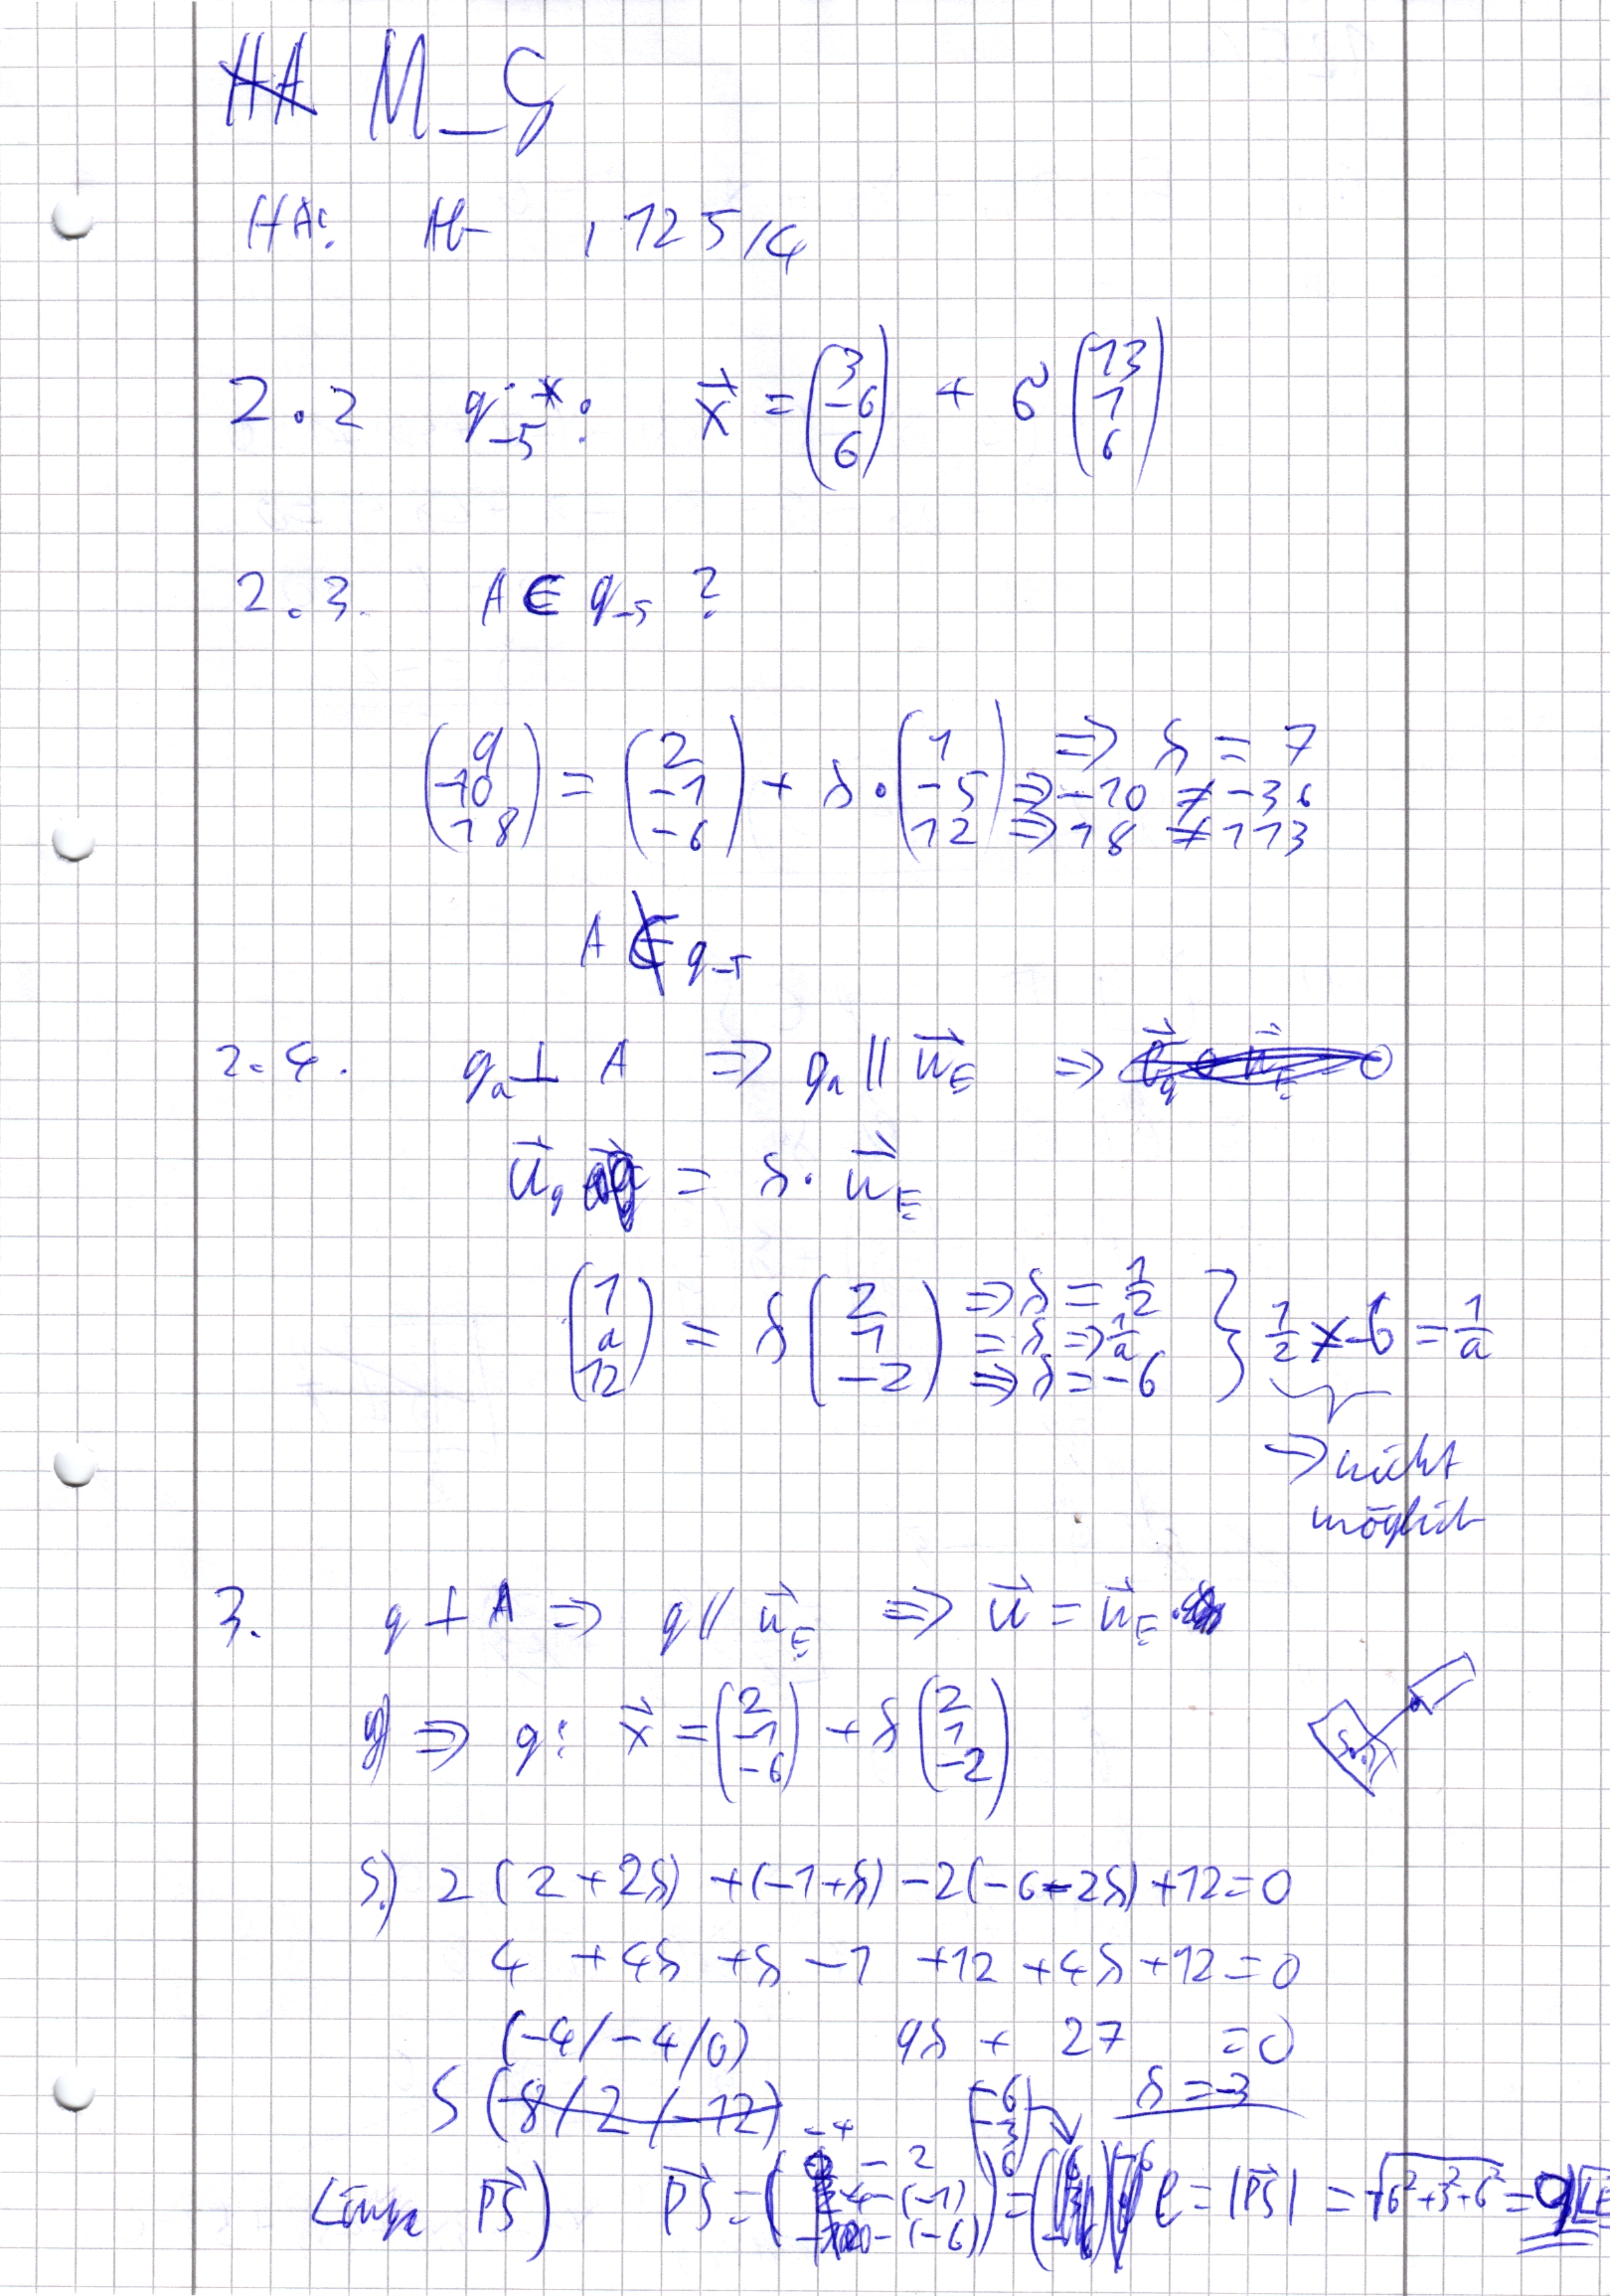 M_G
HA: AB , 125/4
2.2 g*₋₅: x⃗ = (3 / -6 / 6) + σ (13 / 1 / 6)
2.3. A ∈ g₋₅ ?
(9 / -10 / 18) = (2 / -1 / -6) + s · (1 / -5 / 12) ⇒ s = 7
⇒ -10 ≠ -36
⇒ 18 ≠ 113
A ∉ g₋₅
2.4. gₐ ⊥ A ⇒ gₐ ∥ n⃗_E ⇒
u⃗_g = s · n⃗_E
(1 / a / 12) = s (2 / 1 / -2) ⇒ s = 1/2
= s ⇒ 1/a
⇒ s = -6
} 1/2 ≠ -6 = 1/a
⇒ nicht
möglich
3. g ⊥ A ⇒ g ∥ n⃗_E ⇒ u⃗ = n⃗_E
⇒ g: x⃗ = (2 / -1 / -6) + s (2 / 1 / -2)
S) 2 (2+2s) + (-1+s) - 2(-6-2s) + 12 = 0
4 + 4s + s - 1 + 12 + 4s + 12 = 0
(-4/-4/0) 9s + 27 = 0
S (-8/2/-12) s = -3
Länge PS⃗) PS⃗ = (-4 - 2 / -4 - (-1) / 0 - (-6)) = (-6 / -3 / 6) l = |PS⃗| = √6²+3²+6² = 9 [LE